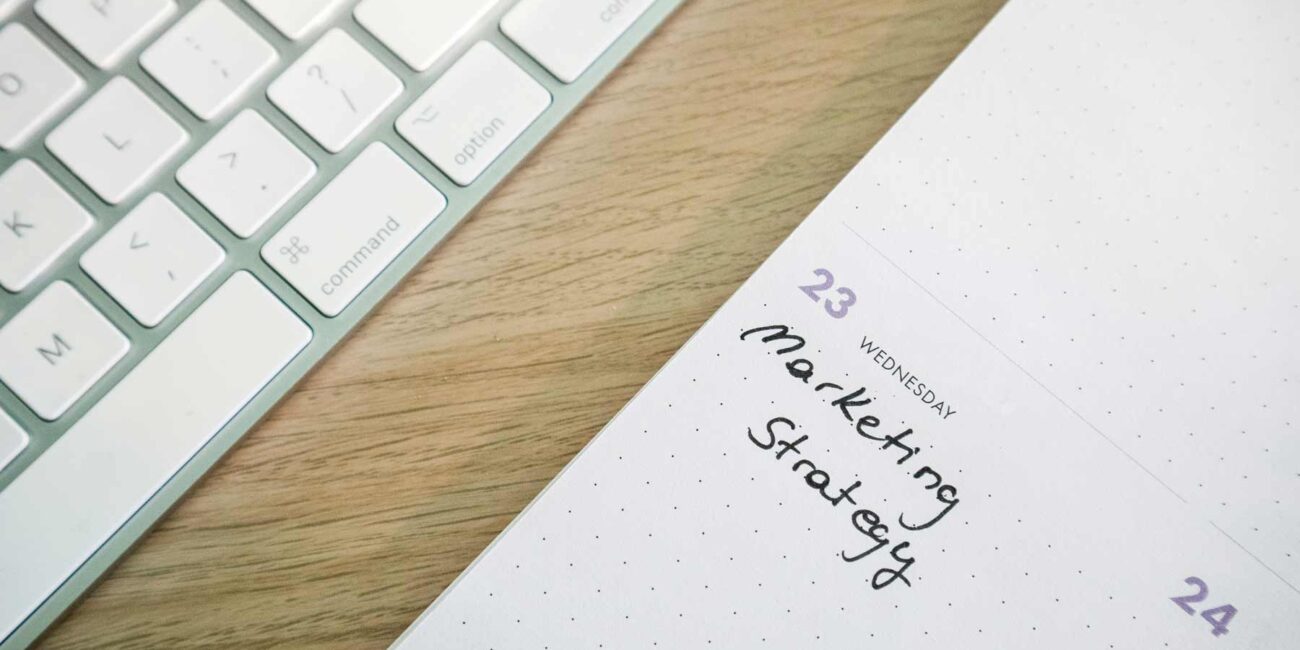 : ;
? /
L
> .
option
K
< ,
⌘
command
M
23
WEDNESDAY
Marketing
Strategy
24